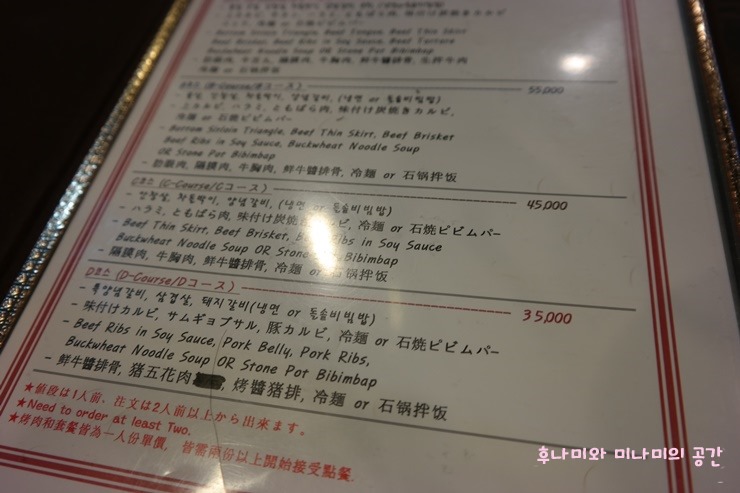 Bottom Sirloin Triangle, Beef Tongue, Beef Thin Skirt
Beef Brisket, Beef Ribs in Soy Sauce, Beef Tartare
Buckwheat Noodle Soup OR Stone Pot Bibimbap
B코스 (B-Course/Bコース) 55,000
양념갈비, (냉면 or 돌솥비빔밥)
- ミカルビ, ハラミ, ともばら肉, 味付け炭焼きカルビ,
冷麺 or 石焼ビビムバー
- Bottom Sirloin Triangle, Beef Thin Skirt, Beef Brisket
Beef Ribs in Soy Sauce, Buckwheat Noodle Soup
OR Stone Pot Bibimbap
隔膜肉, 牛胸肉, 鮮牛醬排骨, 冷麵 or 石锅拌饭
C코스 (C-Course/Cコース) 45,000
- 안창살, 차돌박이, 양념갈비, (냉면 or 돌솥비빔밥)
- ハラミ, ともばら肉, 味付け炭焼きカルビ, 冷麺 or 石焼ビビムバー
- Beef Thin Skirt, Beef Brisket, Beef Ribs in Soy Sauce
Buckwheat Noodle Soup OR Stone Pot Bibimbap
- 隔膜肉, 牛胸肉, 鮮牛醬排骨, 冷麵 or 石锅拌饭
D코스 (D-Course/Dコース) 35,000
- 특양념갈비, 삼겹살, 돼지갈비(냉면 or 돌솥비빔밥)
- 味付けカルビ, サムギョプサル, 豚カルビ, 冷麺 or 石焼ビビムバー
- Beef Ribs in Soy Sauce, Pork Belly, Pork Ribs,
Buckwheat Noodle Soup OR Stone Pot Bibimbap
- 鮮牛醬排骨, 猪五花肉, 烤醬猪排, 冷麵 or 石锅拌饭
★値段は1人前、注文は2人前以上から出来ます。
★Need to order at least Two.
★烤肉和套餐皆為一人份單價, 皆需兩份以上開始接受點餐.
후나미와 미나미의 공간